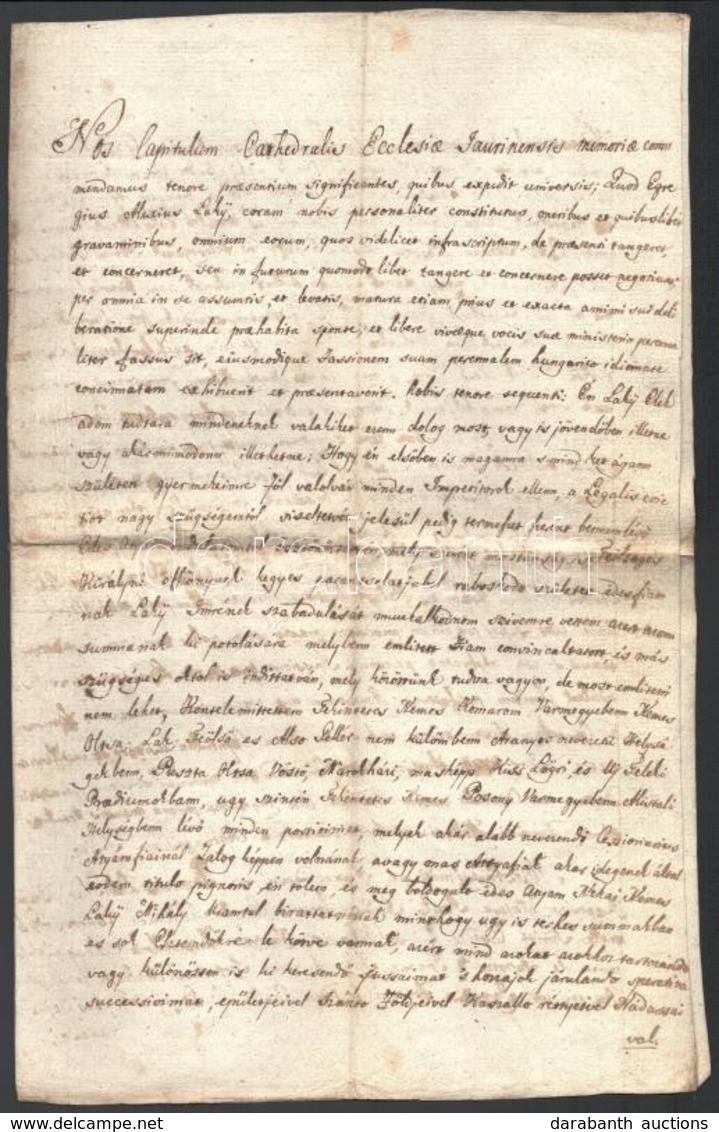 Nos Capitulum Cathedralis Ecclesiæ Jaurinensis memoriæ com
mendamus tenore præsentium significantes, quibus expedit universis; Quod Egre
gius Alexius Laky, coram nobis personaliter constitutus, oneribus et quibuslibet
gravaminibus, omnium eorum, quos videlicet infrascriptum, de præsenti tangeret,
et concerneret, seu in futurum quomodolibet tangere et concernere posset negotium,
per omnia in se assumtis, et levatis, matura etiam prius et exacta animi sui deli
beratione superinde præhabita sponte, et libere vivæque vocis suæ ministerio persona
liter fassus sit, eiusmodique Fassionem suam personalem hungarico idiomate
concinnatam exhibuerit et præsentaverit. Nobis tenore sequenti: Én Laky Elek
adom tudtára mindeneknek valakiket ezem dolog most, vagy is jövendőben illetne
vagy akármimodon illethetne; Hogy én elsőben is magamra s mind két ágam
született gyermekeimre föl valolván minden Impetitorok ellem, a Legalis evic
tiot nagy szügségemtöl viseltetvén, jelesül pedig
Királyné Aszonyunk kegyes parancsolatjokal született édes fiam
nak Laky Imrének szabadulását munkalkodnom szivemre vettem azert azon
summanak ki potolására melyben emlitett Fiam convincaltatott és más
szügséges oktol is indittatván, mely közöttünk tudva vagyon, de most emliteni
nem lehet, Kentelemittettem Tekintetes Nemes Komarom Varmegyeben Nemes
Ólsa, Lak, Fölső és Alsó Gellér nem külömben Aranyos nevezetü Helysé
gekben, Puszta Ólsa Vöstö, Marokhári, maskepp Kiss Lögri, és Uj Feleki
Prædiumokban, ugy szintén Tekintetes Nemes Posony Varmegyeben Mistali
Helységben lévő minden portioimat, melyek akár alabb nevezendő Cessionarius
Atyámfiainál Zalog képpen volnának, avagy más Attyafiak akár idegenek által
eodem titulo pignoris, én tölem, és meg boldogult édes Atyám Néhai Nemes
Laky Mihály Uramtul birattatnának minthogy ugy is terhes summakban
es sok Esztendökre le kötve vannak, azért mind azokat azokhoz tartozando
vagy különössen is ki keresendő Jussaimat s hozzájok járulando sperativa
successioimat, epületjeivel Szánto Földjeivel Kaszallo rétjeivel Nádassai
val.
darabanth
darabanth auctions